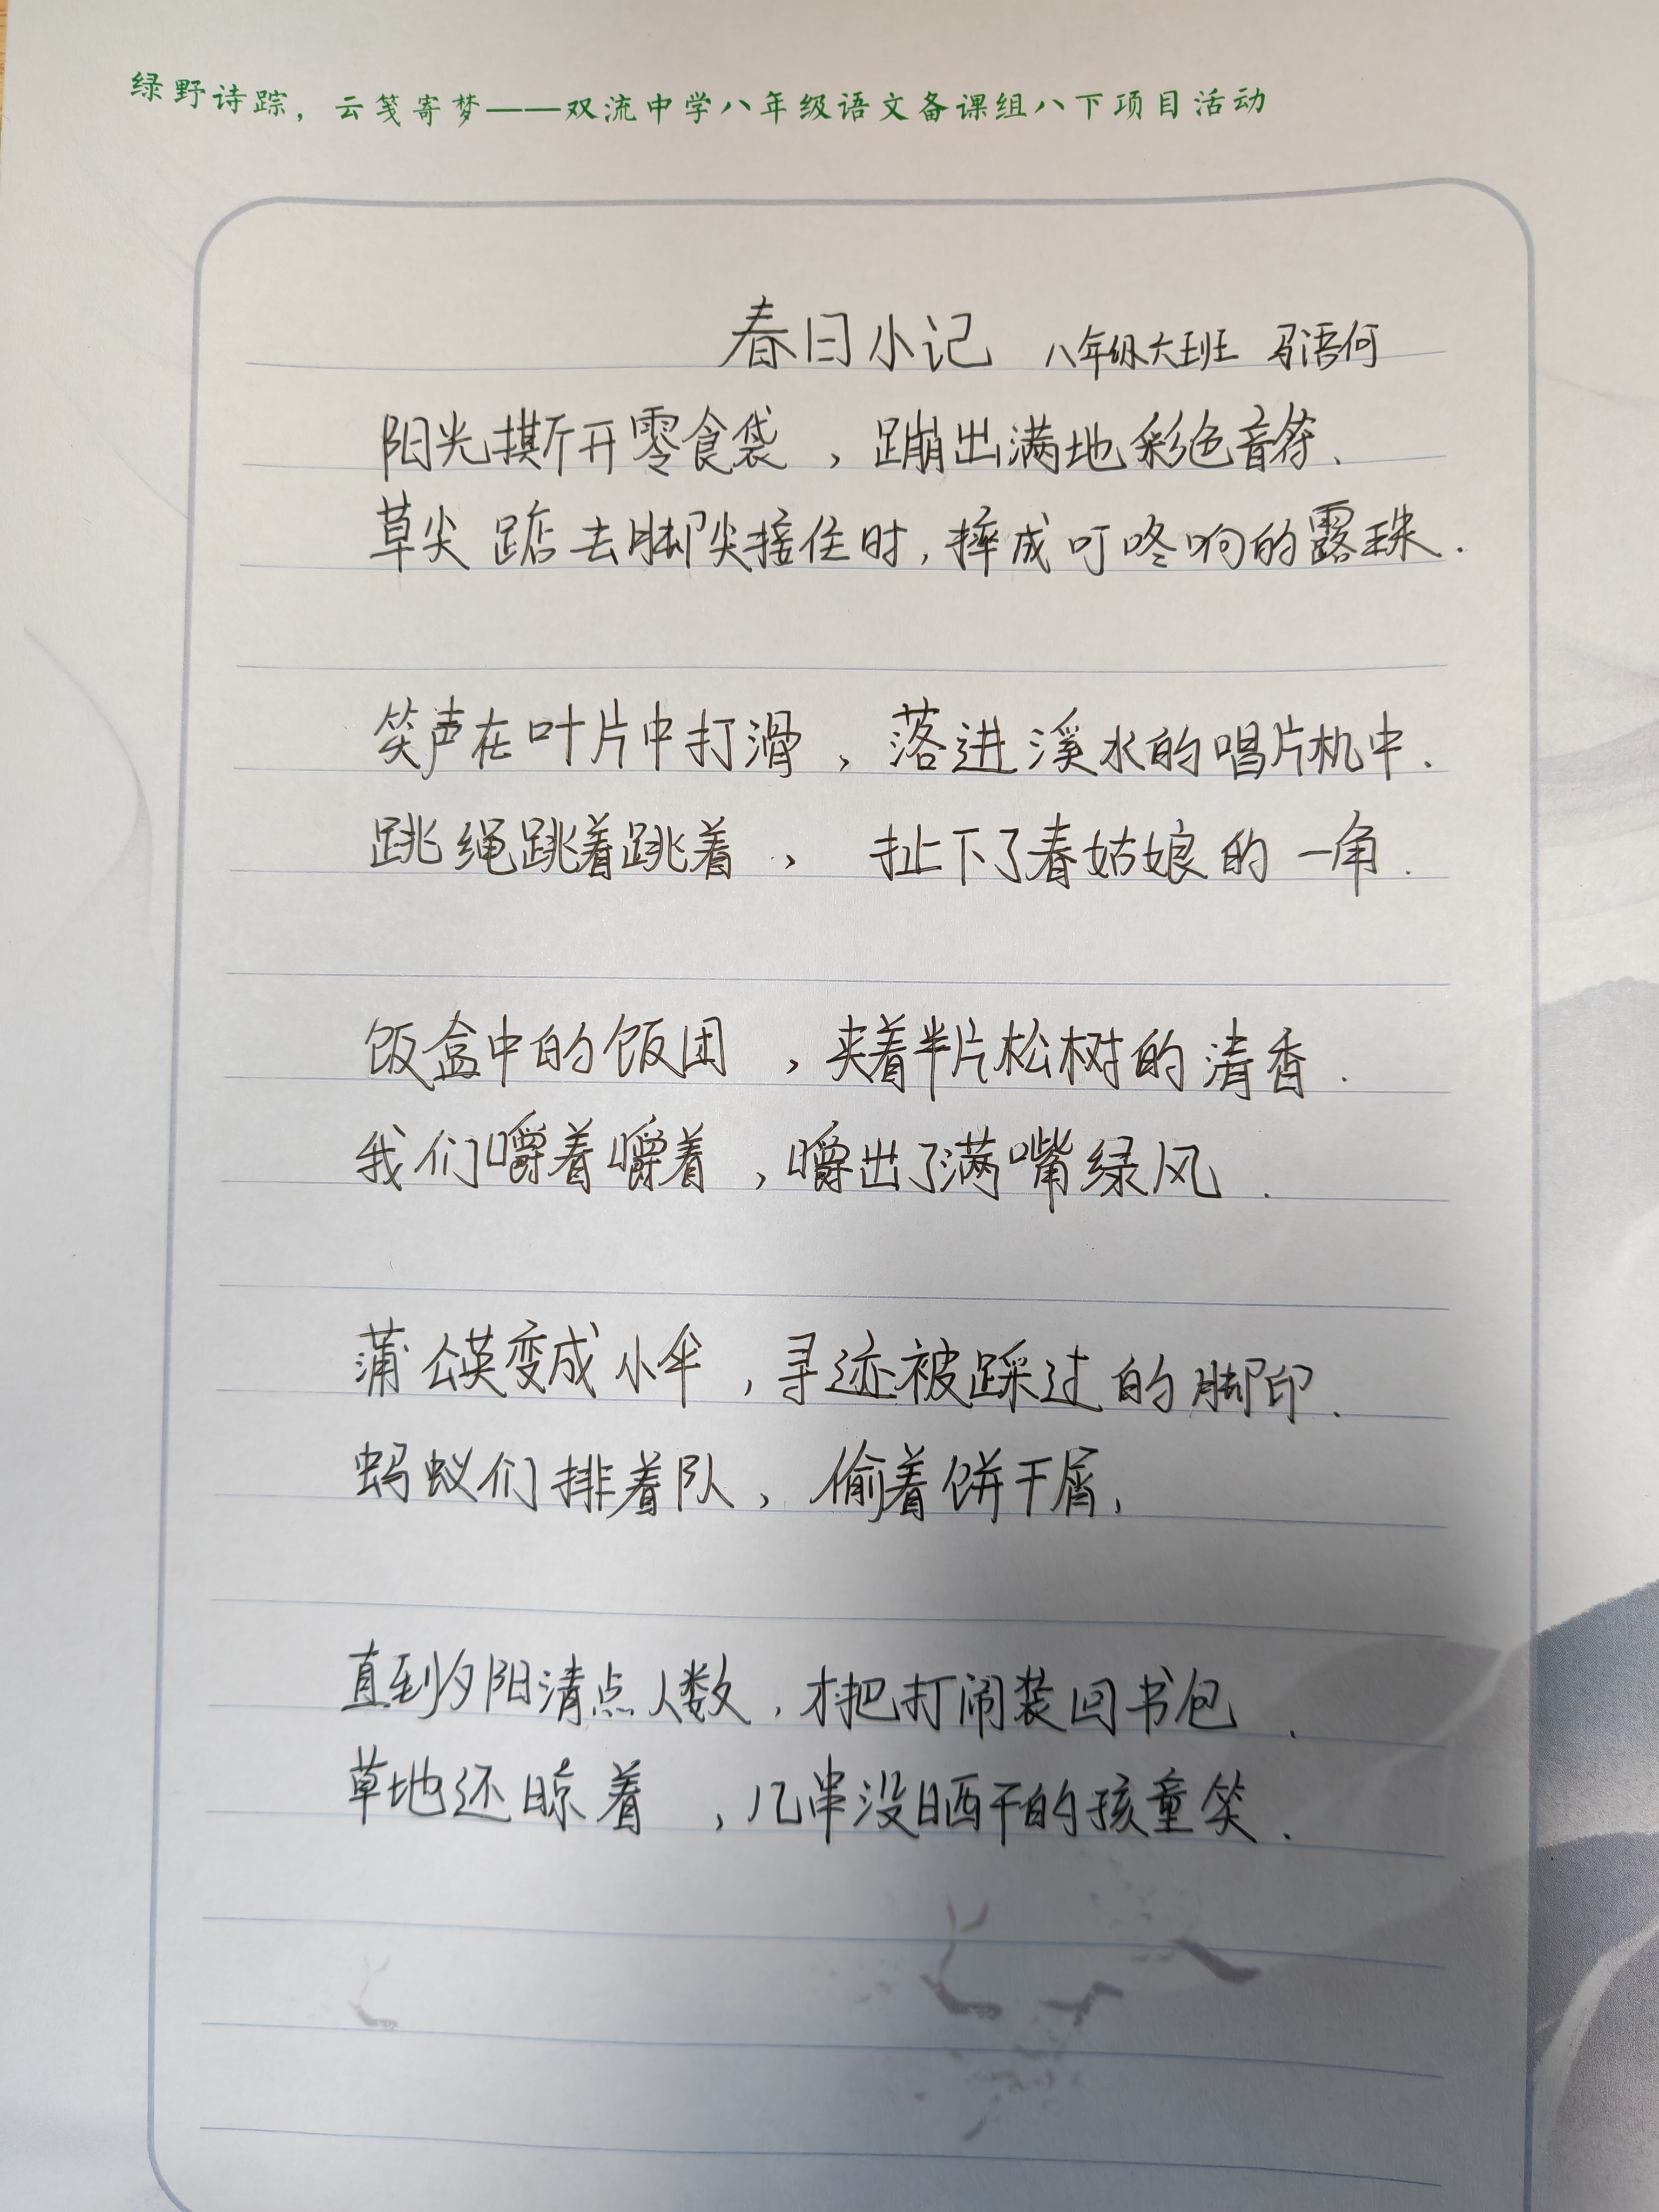 绿野诗踪，云笺寄梦——双流中学八年级语文备课组八下项目活动
春日小记 八年级大班 马语何
阳光撕开零食袋，蹦出满地彩色音符、
草尖踮去脚尖接住时，摔成叮咚响的露珠.
笑声在叶片中打滑，落进溪水的唱片机中.
跳绳跳着跳着，扯下了春姑娘的一角.
饭盒中的饭团，夹着半片松树的清香.
我们嚼着嚼着，嚼出了满嘴绿风.
蒲公英变成小伞，寻迹被踩过的脚印.
蚂蚁们排着队，偷着饼干屑，
直到夕阳清点人数，才把打闹装回书包.
草地还晾着，几串没晒干的孩童笑.